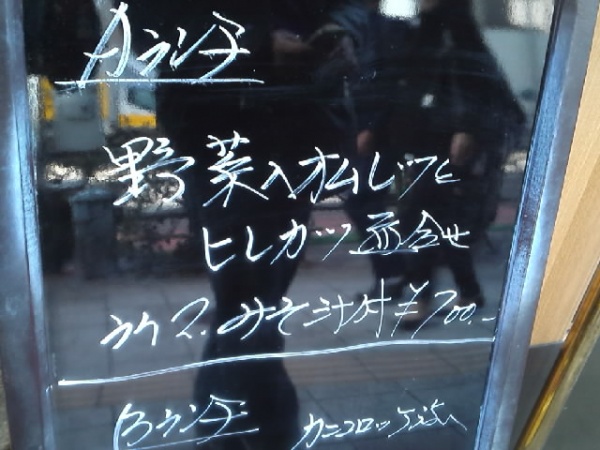 Aランチ
野菜入オムレツと
ヒレカツ盛合せ
ライス、みそ汁付¥700.-
Bランチ カニコロッケ